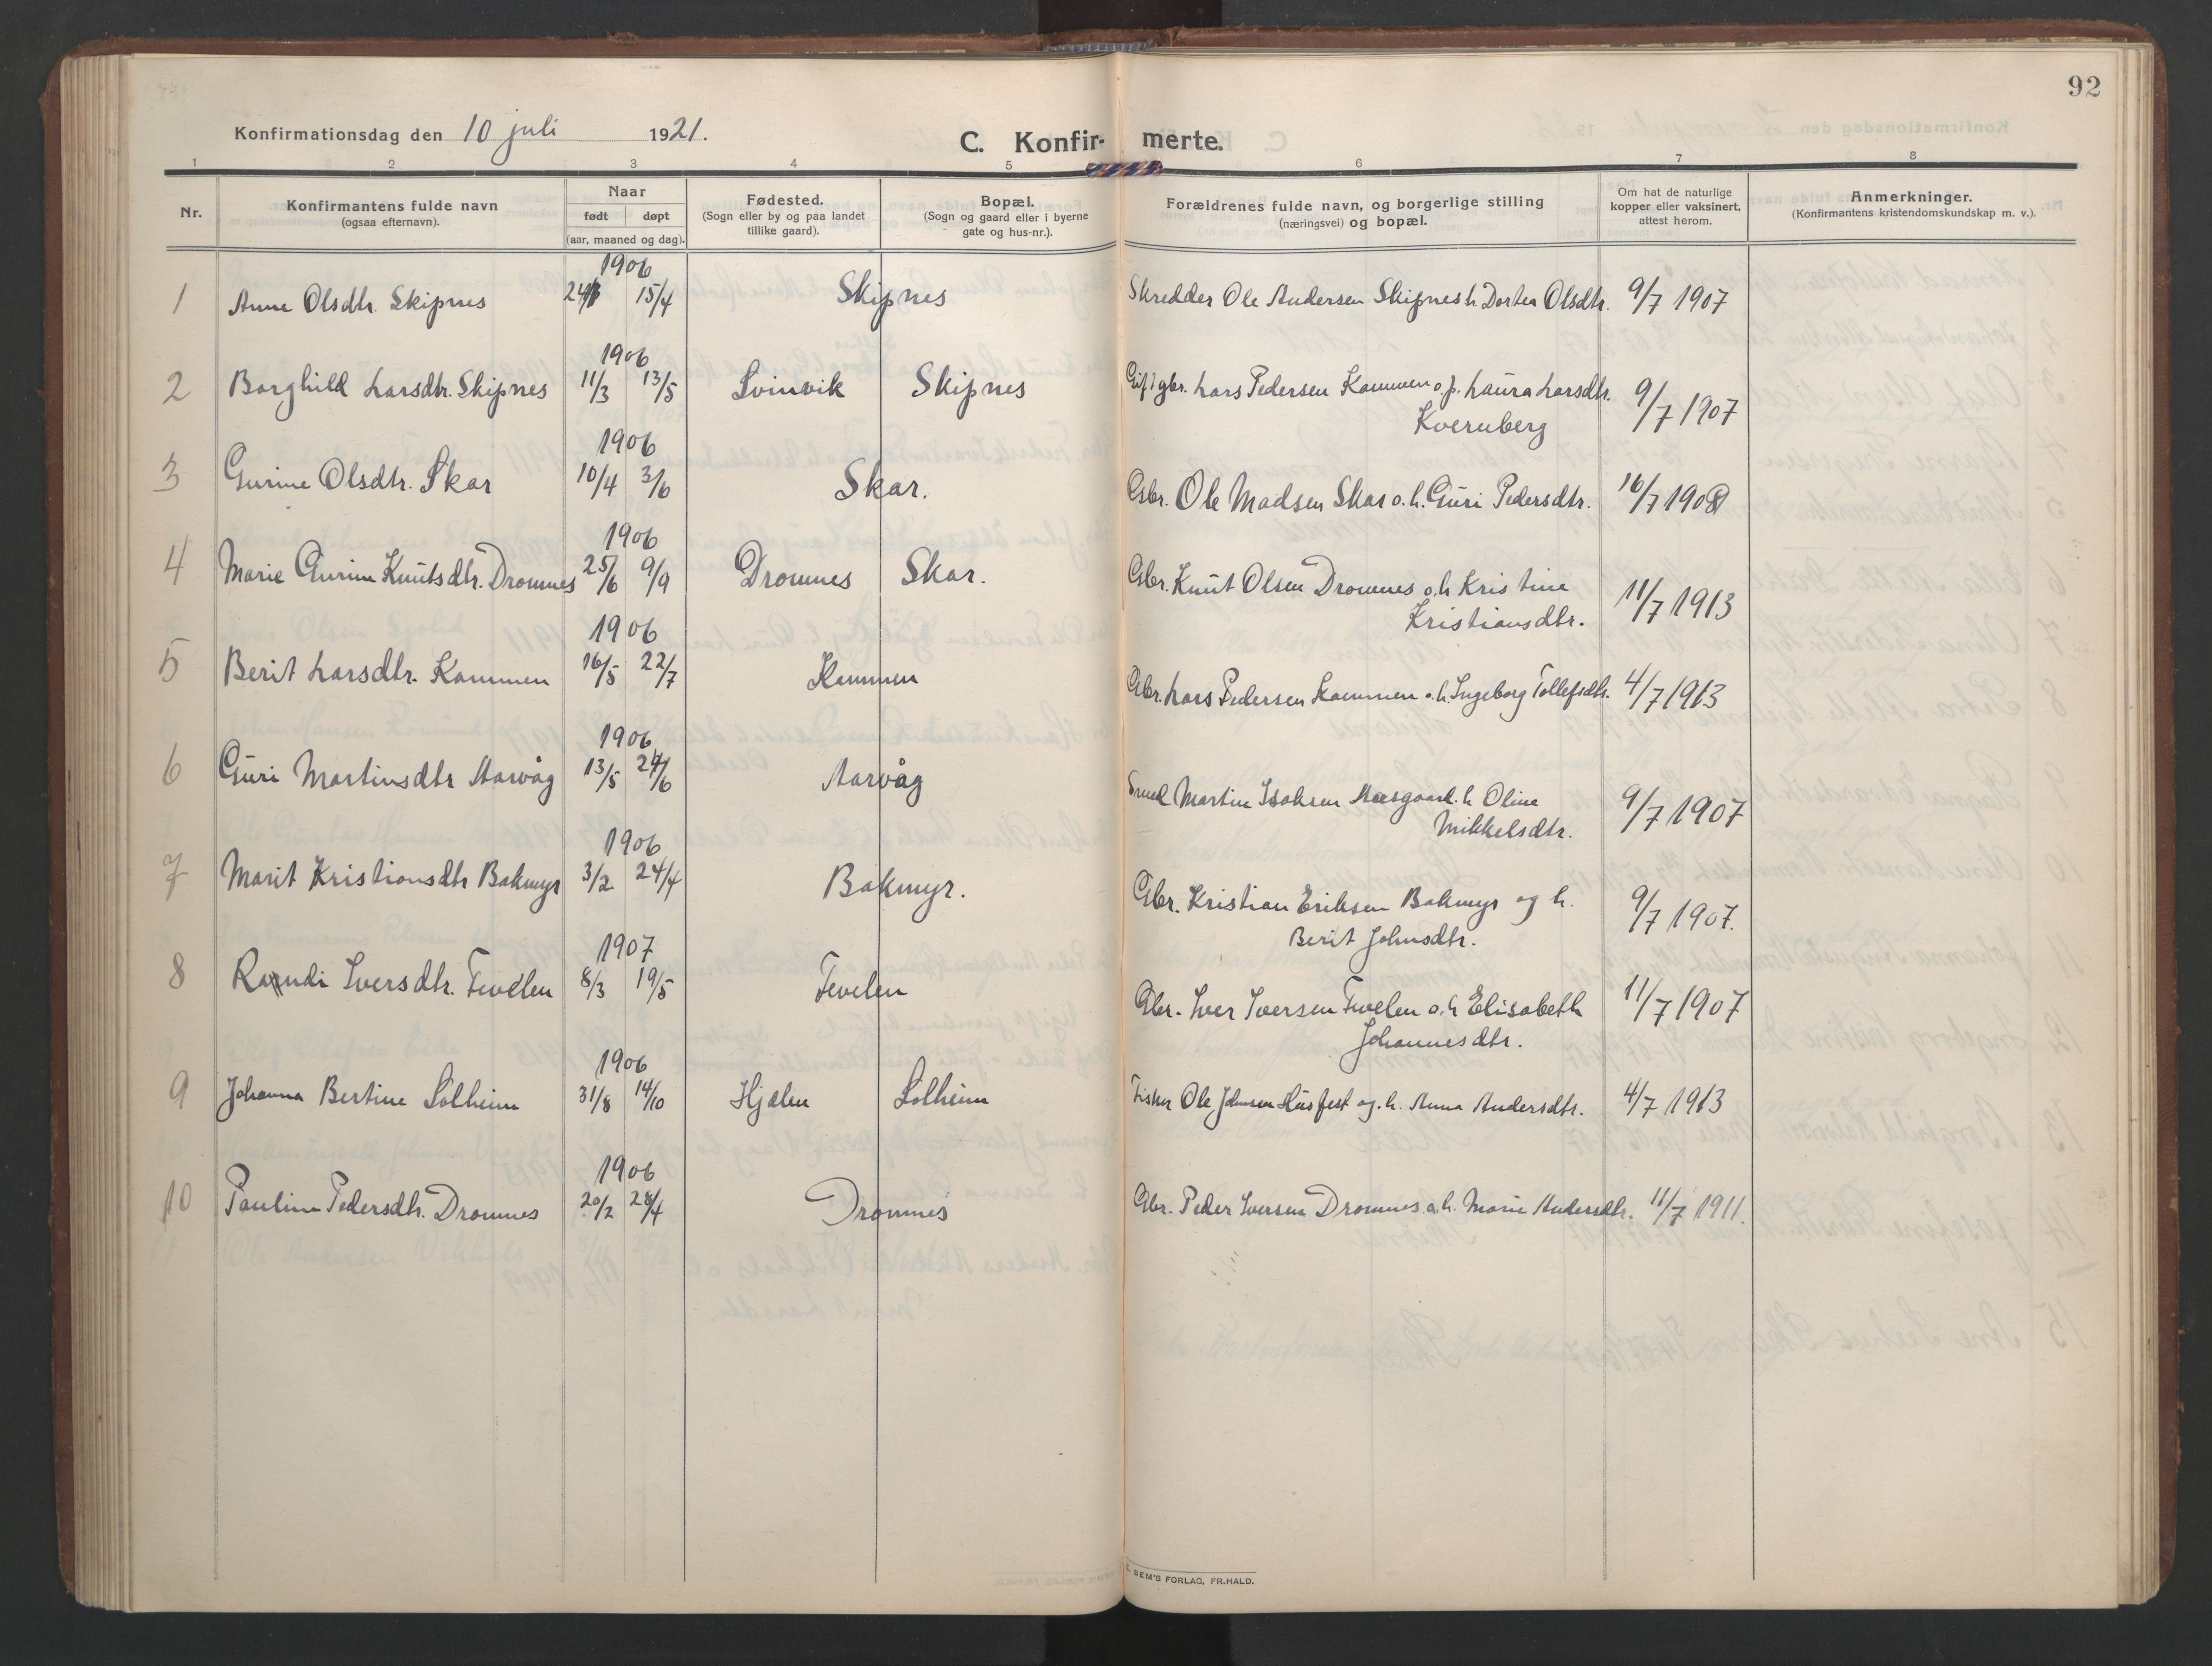 92
Konfirmationsdag den 10 juli 1921.
C. Konfir- merte.
1 2 3 4 5 6 7 8
Nr.
Konfirmantens fulde navn
(ogsaa efternavn).
Naar
født døpt
(aar, maaned og dag).
Fødested.
(Sogn eller by og paa landet
tillike gaard).
Bopæl.
(Sogn og gaard eller i byerne
gate og hus-nr.).
Forældrenes fulde navn, og borgerlige stilling
(næringsvei) og bopæl.
Om hat de naturlige
kopper eller vaksinert,
attest herom.
Anmerkninger.
(Konfirmantens kristendomskundskap m. v.).
1906
1 Anne Olsdtr. Skipnes 15/4 Skipnes Skredder Ole Andersen Skipnes h. Dortea Olsdtr. 9/7 1907
1906
2 Borghild Larsdtr. Skipnes 11/3 13/5 Svinvik Skipnes Gift gbr. Lars Pedersen Kammen o. p. Laura Larsdtr.
Kvernberg 9/7 1907
1906
3 Gurine Olsdtr. Skar 10/4 3/6 Skar. Gbr. Ole Madsen Skar o. h. Guri Pedersdtr. 16/7 1908
1906
4 Marie Gurine Knutsdtr. Dromnes 25/6 9/9 Dromnes Skar. Gbr. Knut Olsen Dromnes o. h Kristine
Kristiansdtr. 11/7 1913
1906
5 Berit Larsdtr. Kammen 16/5 22/7 Kammen Gbr. Lars Pedersen Kammen o. h. Ingeborg Tollefsdtr. 4/7 1913
1906
6 Guri Martinsdtr Aarvåg 13/5 24/6 Aarvåg Smed Martin Isaksen h Oline
Mikkelsdtr. 9/7 1907
1906
7 Marit Kristiansdtr Bakmyr 3/2 24/4 Bakmyr. Gbr. Kristian Eriksen Bakmyr og h.
Berit Johnsdtr. 9/7 1907.
1907
8 Randi Iversdtr. Fevelen 8/3 19/5 Fevelen Gbr. Iver Iversen Fevelen o. h Elisabeth
Johannesdtr. 11/7 1907
1906
9 Johanna Bertine Solheim 31/8 14/10 Hjælen Solheim Fisker Ole Johnsen Husfest og. h. Anna Andersdtr. 4/7 1913
1906
10 Pauline Pedersdtr. Dromnes 20/2 28/4 Dromnes Gbr. Peder Iversen Dromnes o. h. Marie Andersdtr. 11/7 1911.
SEM'S FORLAG, FR.HALD.